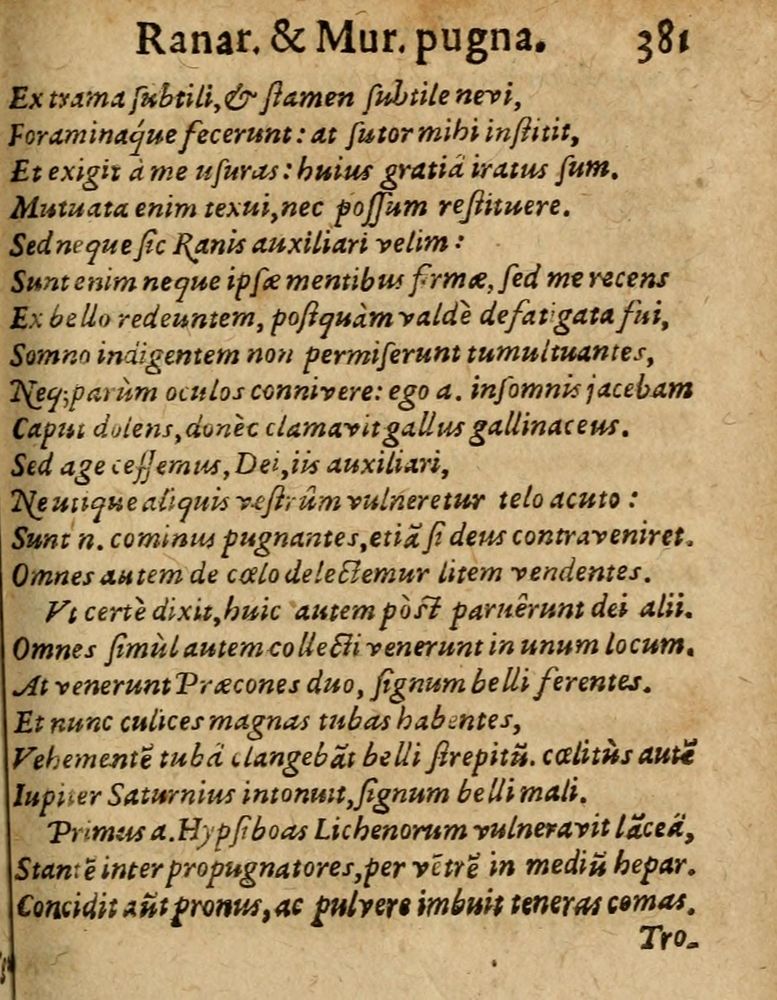 Ranar. & Mur. pugna. 381
Ex trama ſubtili, & ſtamen ſubtile nevi,
Foraminaq́ue fecerunt: at ſutor mihi inſtitit,
Et exigit à me uſuras: huius gratiâ iratus ſum.
Mutuata enim texui, nec poſſum reſtituere.
Sed neque ſic Ranis auxiliari velim:
Sunt enim neque ipſæ mentibus firmæ, ſed me recens
Ex bello redeuntem, poſtquàm valdè defatigata fui,
Somno indigentem non permiſerunt tumultuantes,
Neq; parùm oculos connivere: ego a. inſomnis jacebam
Caput dolens, donèc clamavit gallus gallinaceus.
Sed age ceſſemus, Dei, iis auxiliari,
Ne utique aliquis veſtrûm vulneretur telo acuto:
Sunt n. cominus pugnantes, etiã ſi deus contraveniret.
Omnes autem de cœlo delectemur litem vendentes.
Vt certè dixit, huic autem pòst paruêrunt dei alii.
Omnes ſimùl autem collecti venerunt in unum locum.
At venerunt Præcones duo, ſignum belli ferentes.
Et nunc culices magnas tubas habentes,
Vehementẽ tubâ clangebãt belli ſtrepitũ. cœlitùs autẽ
Iupiter Saturnius intonuit, ſignum belli mali.
Primus a. Hypſiboas Lichenorum vulneravit lãceâ,
Stantẽ inter propugnatores, per vẽtrẽ in mediũ hepar.
Concidit aũt pronus, ac pulvere imbuit teneras comas.
Tro-